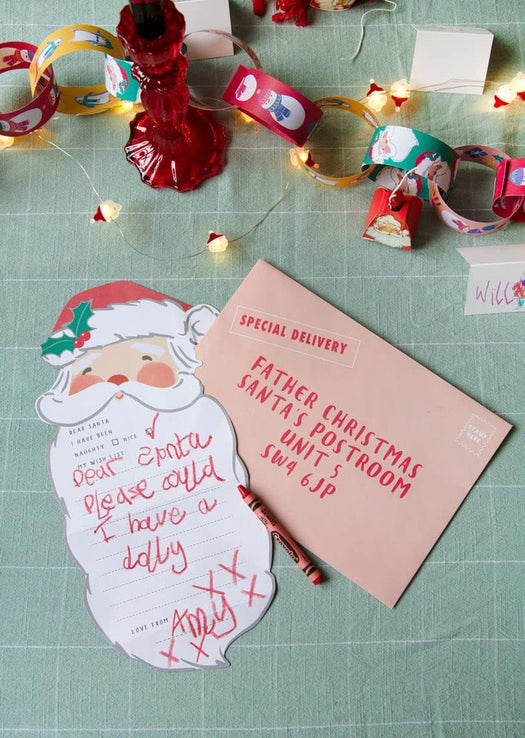 Will
SPECIAL DELIVERY
FATHER CHRISTMAS
SANTA'S POSTROOM
UNIT 5
SW4 6JP
STAMP
HERE
DEAR SANTA
I HAVE BEEN
NAUGHTY NICE
MY WISH LIST:
Dear Santa
Please could
I have a
dolly
LOVE FROM AMY
X X X X X